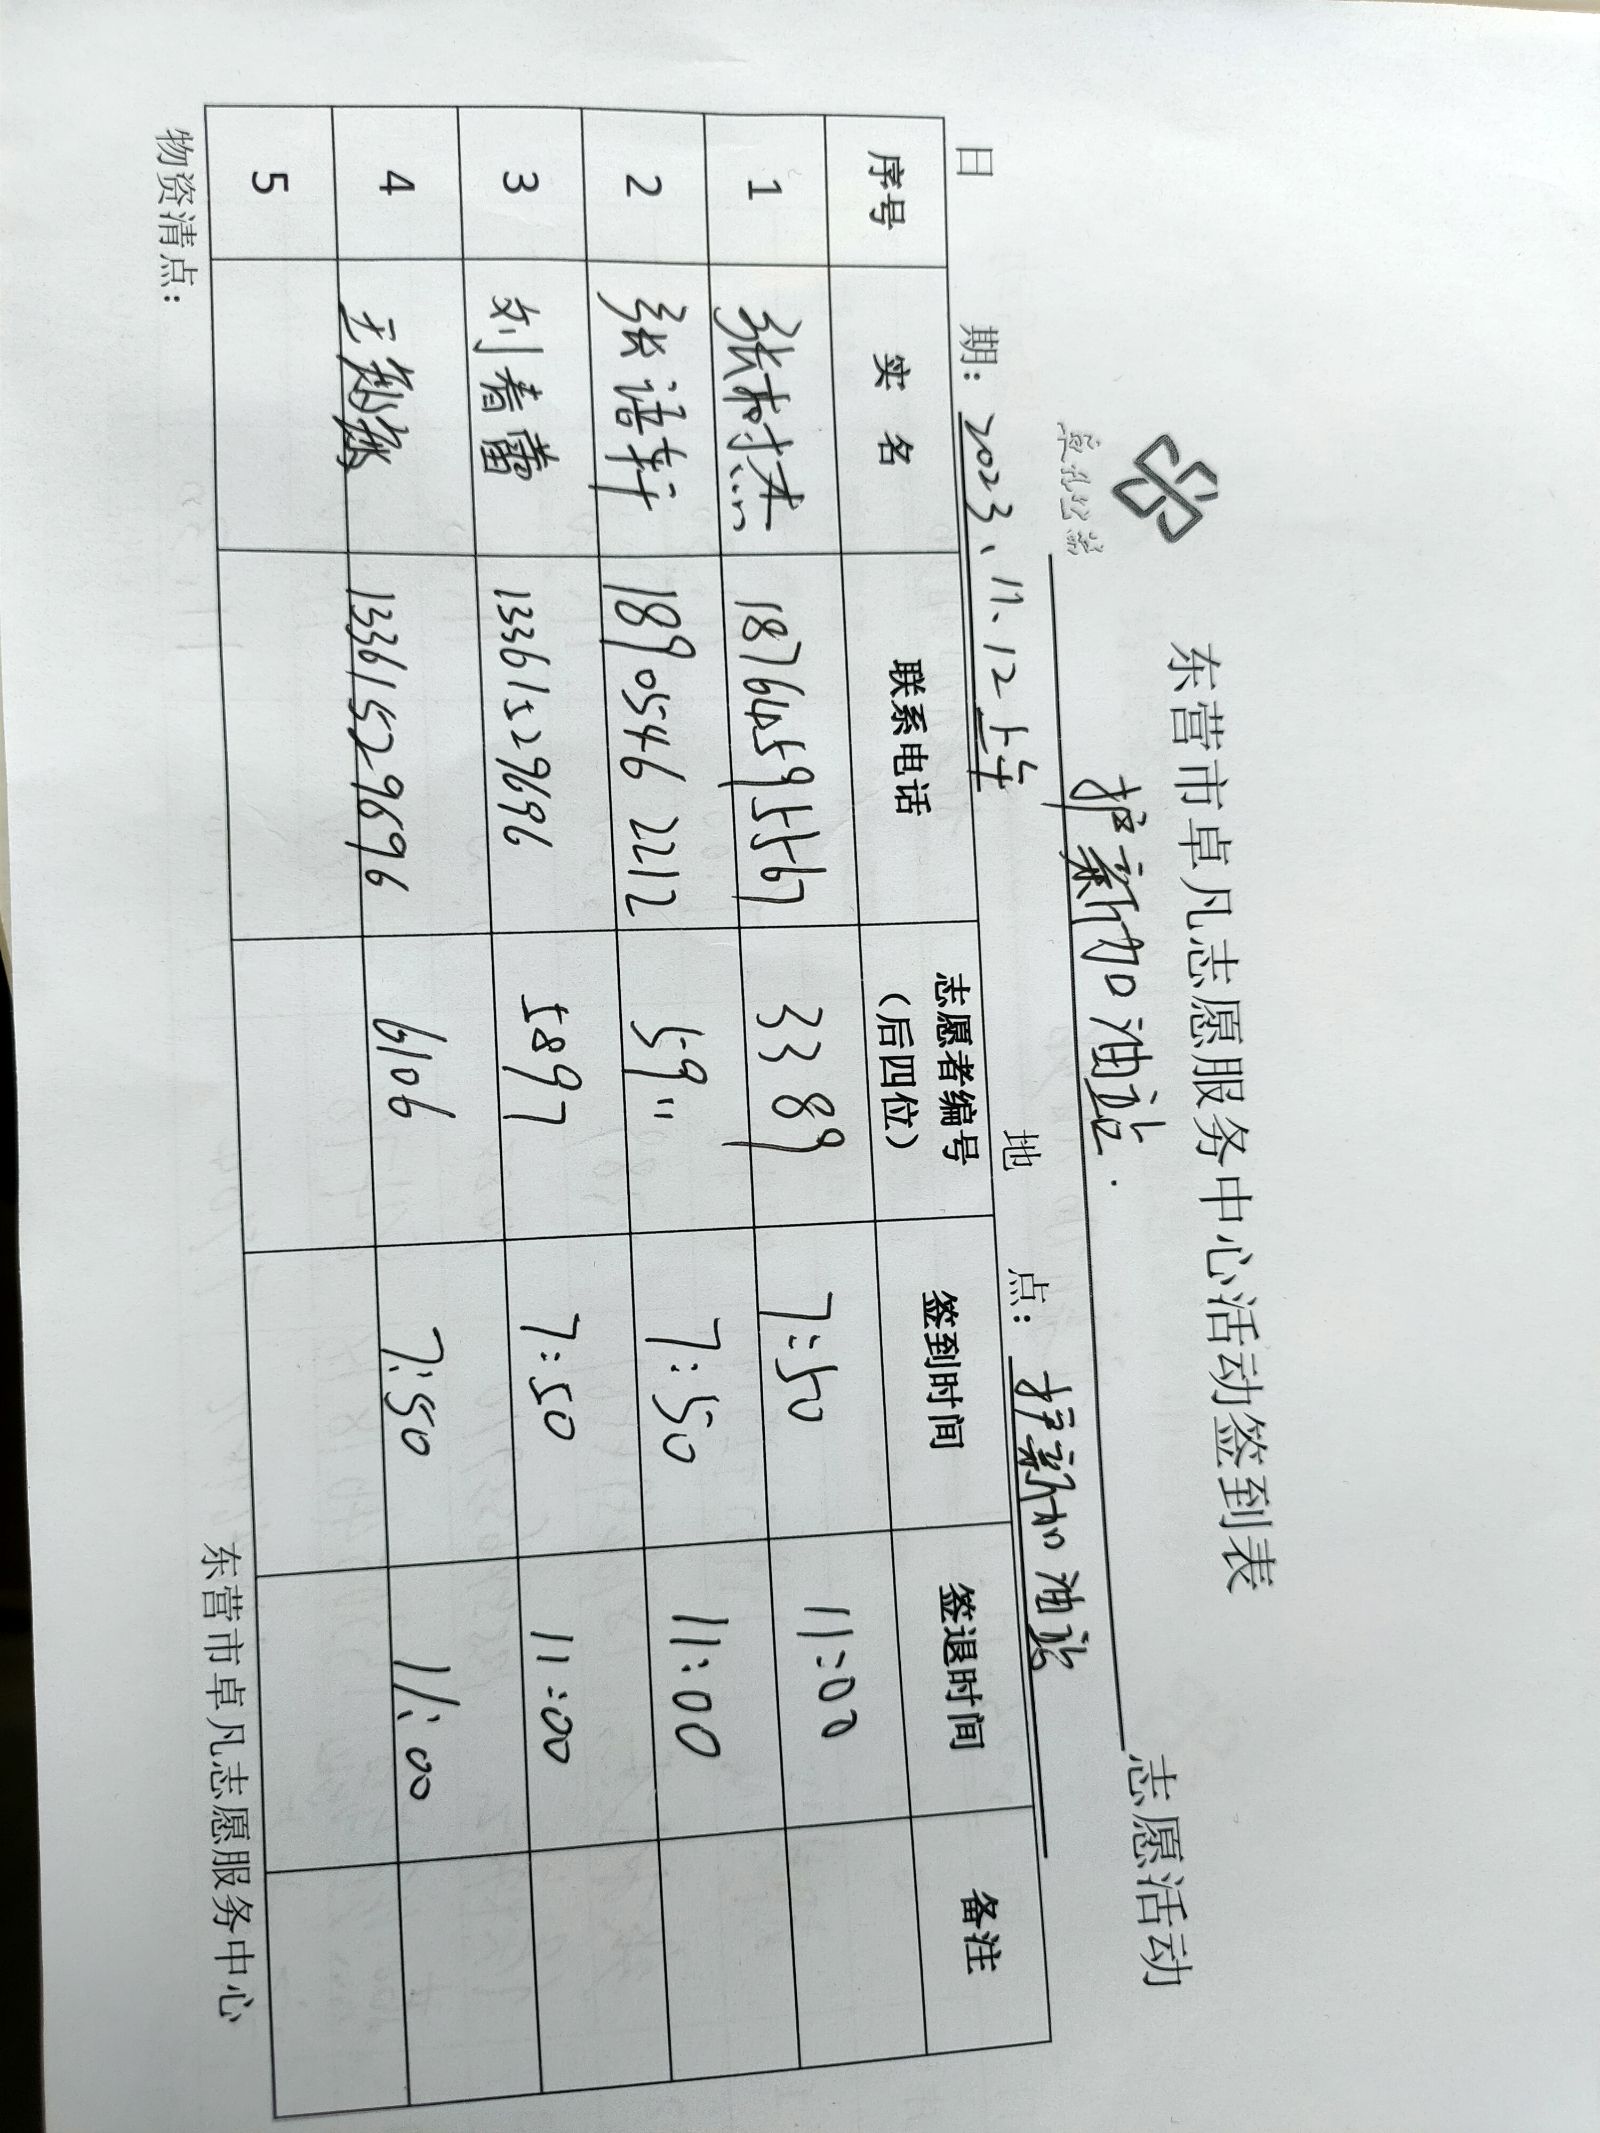 东营市卓凡志愿服务中心活动签到表
护新加油站. 志愿活动
日 期: 2023、11、12 上午 地 点: 护新加油站
序号 实 名 联系电话 志愿者编号（后四位） 签到时间 签退时间 备注
1 张树杰 187640595567 3389 7:50 11:00
2 张语轩 189 0546 2212 5911 7:50 11:00
3 刘春蕾 13361529696 5897 7:50 11:00
4 13361529696 6106 7:50 11:00
5
物资清点： 东营市卓凡志愿服务中心